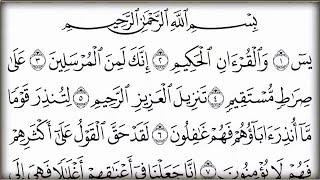 بِسْمِ اللَّهِ الرَّحْمَٰنِ الرَّحِيمِ
يسٓ ۝١ وَالْقُرْءَانِ الْحَكِيمِ ۝٢ إِنَّكَ لَمِنَ الْمُرْسَلِينَ ۝٣ عَلَىٰ
صِرَاطٍ مُّسْتَقِيمٍ ۝٤ تَنزِيلَ الْعَزِيزِ الرَّحِيمِ ۝٥ لِتُنذِرَ قَوْمًا
مَّا أُنذِرَ ءَابَاؤُهُمْ فَهُمْ غَافِلُونَ ۝٦ لَقَدْ حَقَّ الْقَوْلُ عَلَىٰ أَكْثَرِهِمْ
فَهُمْ لَا يُؤْمِنُونَ ۝٧ إِنَّا جَعَلْنَا فِي أَعْنَاقِهِمْ أَغْلَالًا فَهِيَ إِلَى